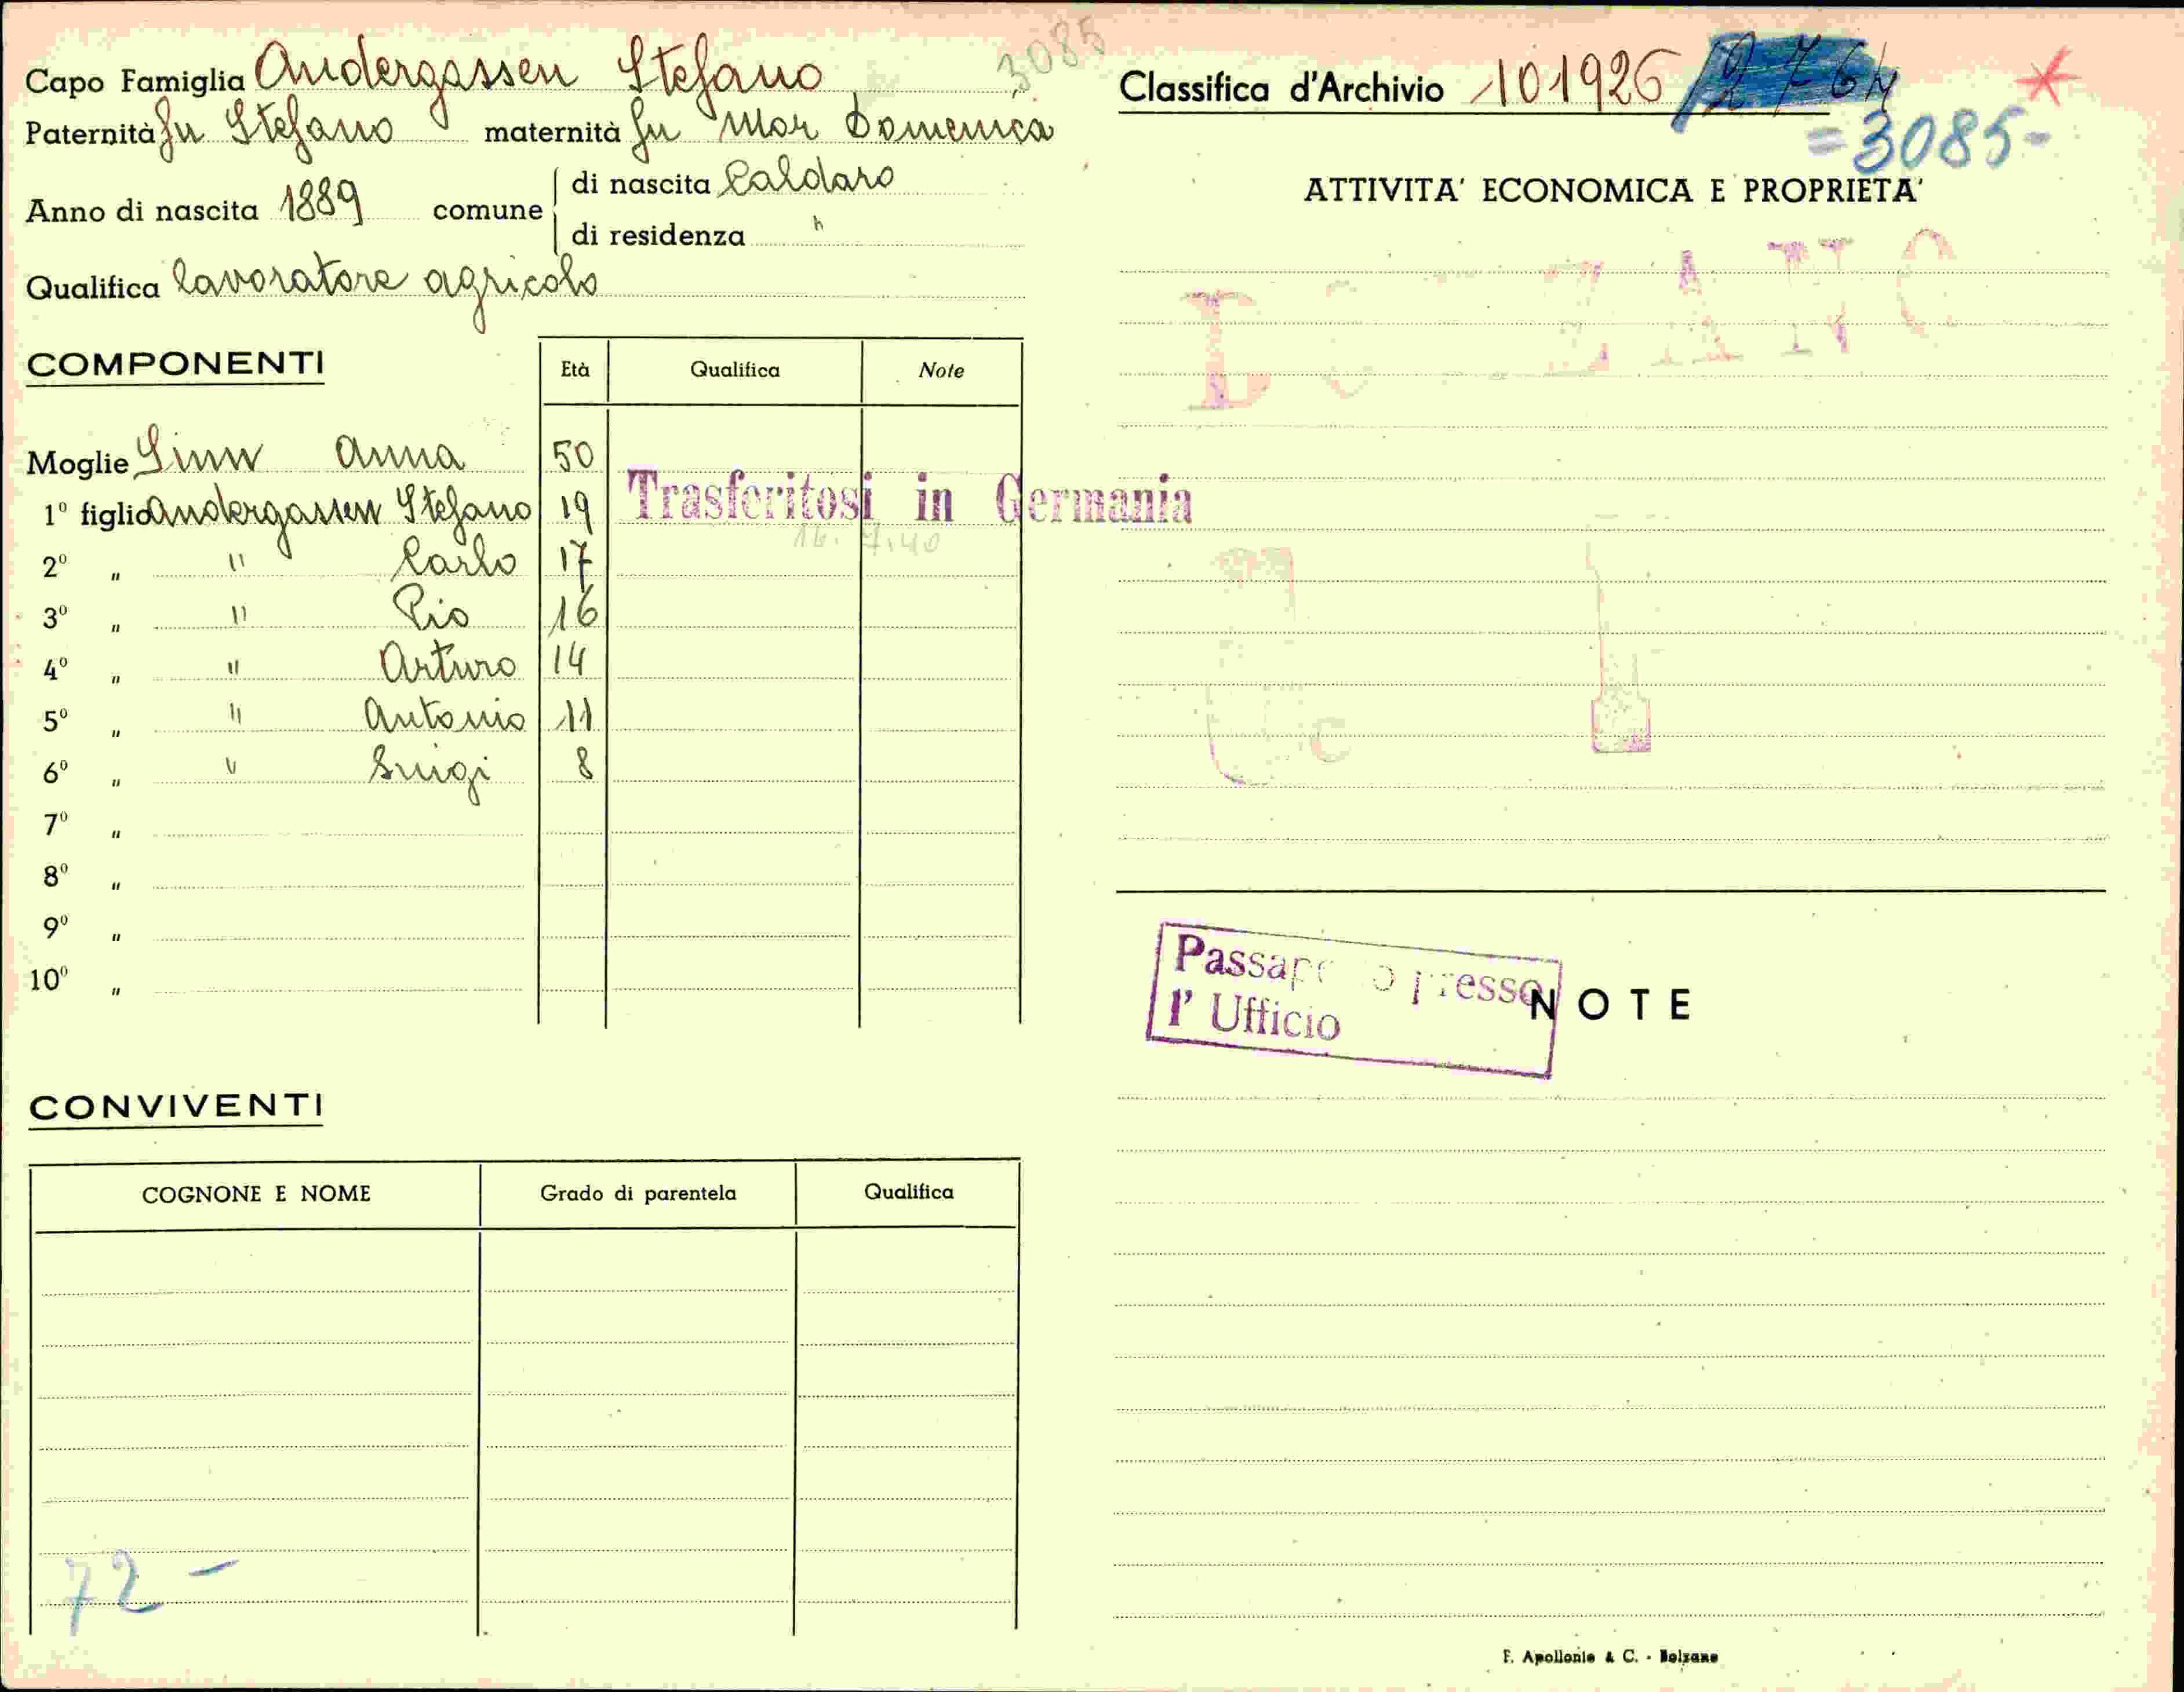 Capo Famiglia Andergassen Stefano 3085
Paternità fu Stefano maternità fu Mor Domenica
Anno di nascita 1889 comune di nascita Caldaro
di residenza "
Qualifica lavoratore agricolo
COMPONENTI Età Qualifica Note
Moglie Sinn Anna 50
1º figlio Andergassen Stefano 19
Trasferitosi in Germania
16.7.40
2º " " Carlo 17
3º " " Pio 16
4º " " Arturo 14
5º " " Antonio 11
6º " " Luigi 8
7º "
8º "
9º "
10º "
CONVIVENTI
COGNONE E NOME Grado di parentela Qualifica
72 -
Classifica d'Archivio 101926
= 3085 -
ATTIVITA' ECONOMICA E PROPRIETA'
presso
l' Ufficio
NOTE
F. Apollonio & C. - Bolzano